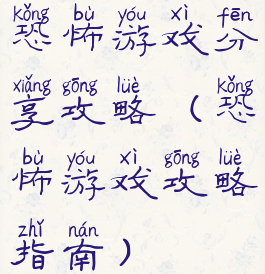 kǒng bù yóu xì fēn
恐怖游戏分
xiǎng gōng lüè kǒng
享攻略（恐
bù yóu xì gōng lüè
怖游戏攻略
zhǐ nán
指南）